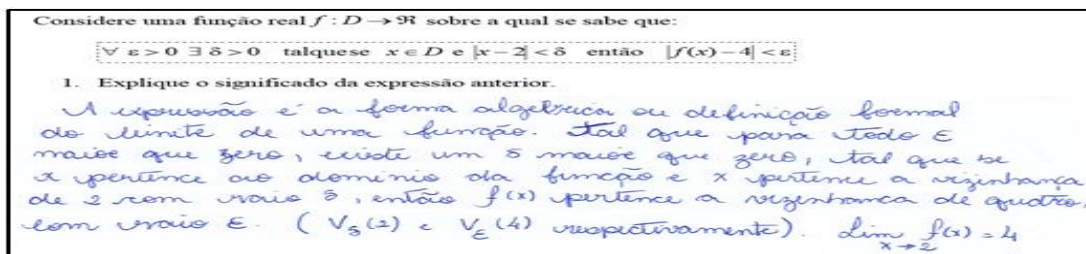 Considere uma função real f : D → ℜ sobre a qual se sabe que:
∀ ε > 0 ∃ δ > 0 talquese x ∈ D e |x − 2| < δ então |f(x) − 4| < ε
1. Explique o significado da expressão anterior.
A expressão é a forma algébrica ou definição formal
do limite de uma função. Tal que para todo ε
maior que zero, existe um δ maior que zero, tal que se
x pertence ao domínio da função e x pertence a vizinhança
de 2 com raio δ, então f(x) pertence a vizinhança de quatro,
com raio ε. ( V_δ(2) e V_ε(4) respectivamente). Lim x→2 f(x) = 4